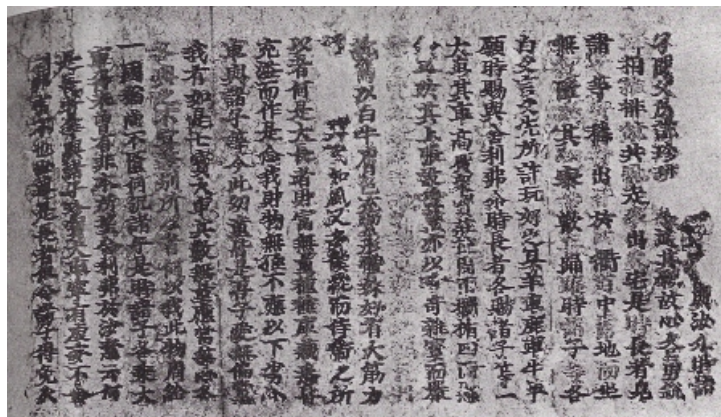 子聞父所說珍玩 適其願故心各勇銳
相推排競共馳走爭出火宅是時長者見
諸子等安穩得出皆於四衢道中露地而坐
無復障其心泰歡喜踊躍時諸子等各
白父言父先所許玩好之具羊車鹿車牛車
願時賜與舍利弗爾時長者各賜諸子等一
大車其車高廣眾寶莊校周匝欄楯四面懸
於其上張設幰蓋亦以珍奇雜寶而嚴
駕以白牛膚色充潔形體姝好有大筋力
其疾如風又多僕從而侍衛之所
以者何是大長者財富無量種種庫藏悉皆
充溢而作是念我財物無極不應以下劣小
車與諸子等今此幼童皆是吾子愛無偏黨
我有如是七寶大車其數無量應當等心各
各與之不宜差別所以者何以我此物周給
一國猶尚不匱何況諸子是時諸子各乘大
車得未曾有非本所望舍利弗於汝意云何
是長者等與諸子珍寶大車寧有虛妄不舍
利弗言不也世尊是長者但令諸子得免火